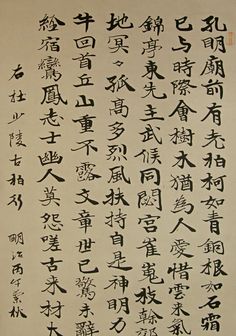 孔明廟前有老柏柯如青銅根如石霜
已與時際會樹木猶為人愛惜雲来氣
錦亭東先主武侯同閟宮崔嵬枝幹郊
地冥々孤高多烈風扶持自是神明力
牛回首丘山重不露文章世已驚未辭
經宿鸞鳳志士幽人莫怨嗟古来材大
右杜少陵古柏行 明治丙午秋